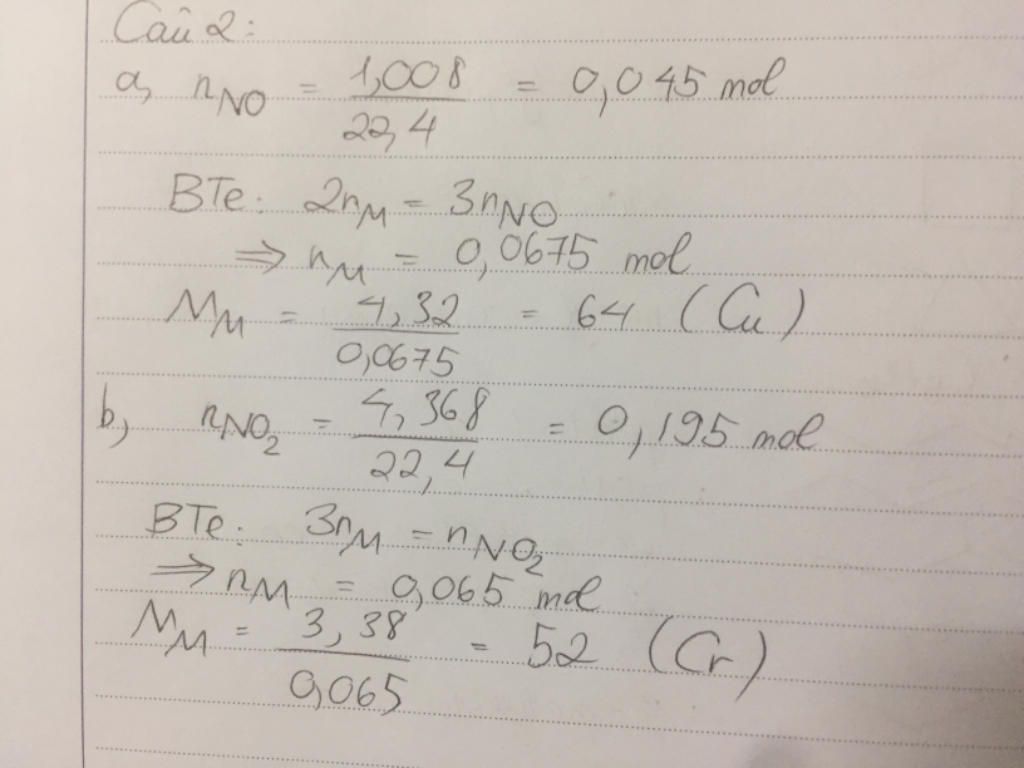 Câu 2:
a, nNO = 1,008/22,4 = 0,045 mol
BTe: 2nM = 3nNO
⇒ nM = 0,0675 mol
MM = 4,32/0,0675 = 64 (Cu)
b, nNO2 = 4,368/22,4 = 0,195 mol
BTe: 3nM = nNO2
⇒ nM = 0,065 mol
MM = 3,38/0,065 = 52 (Cr)